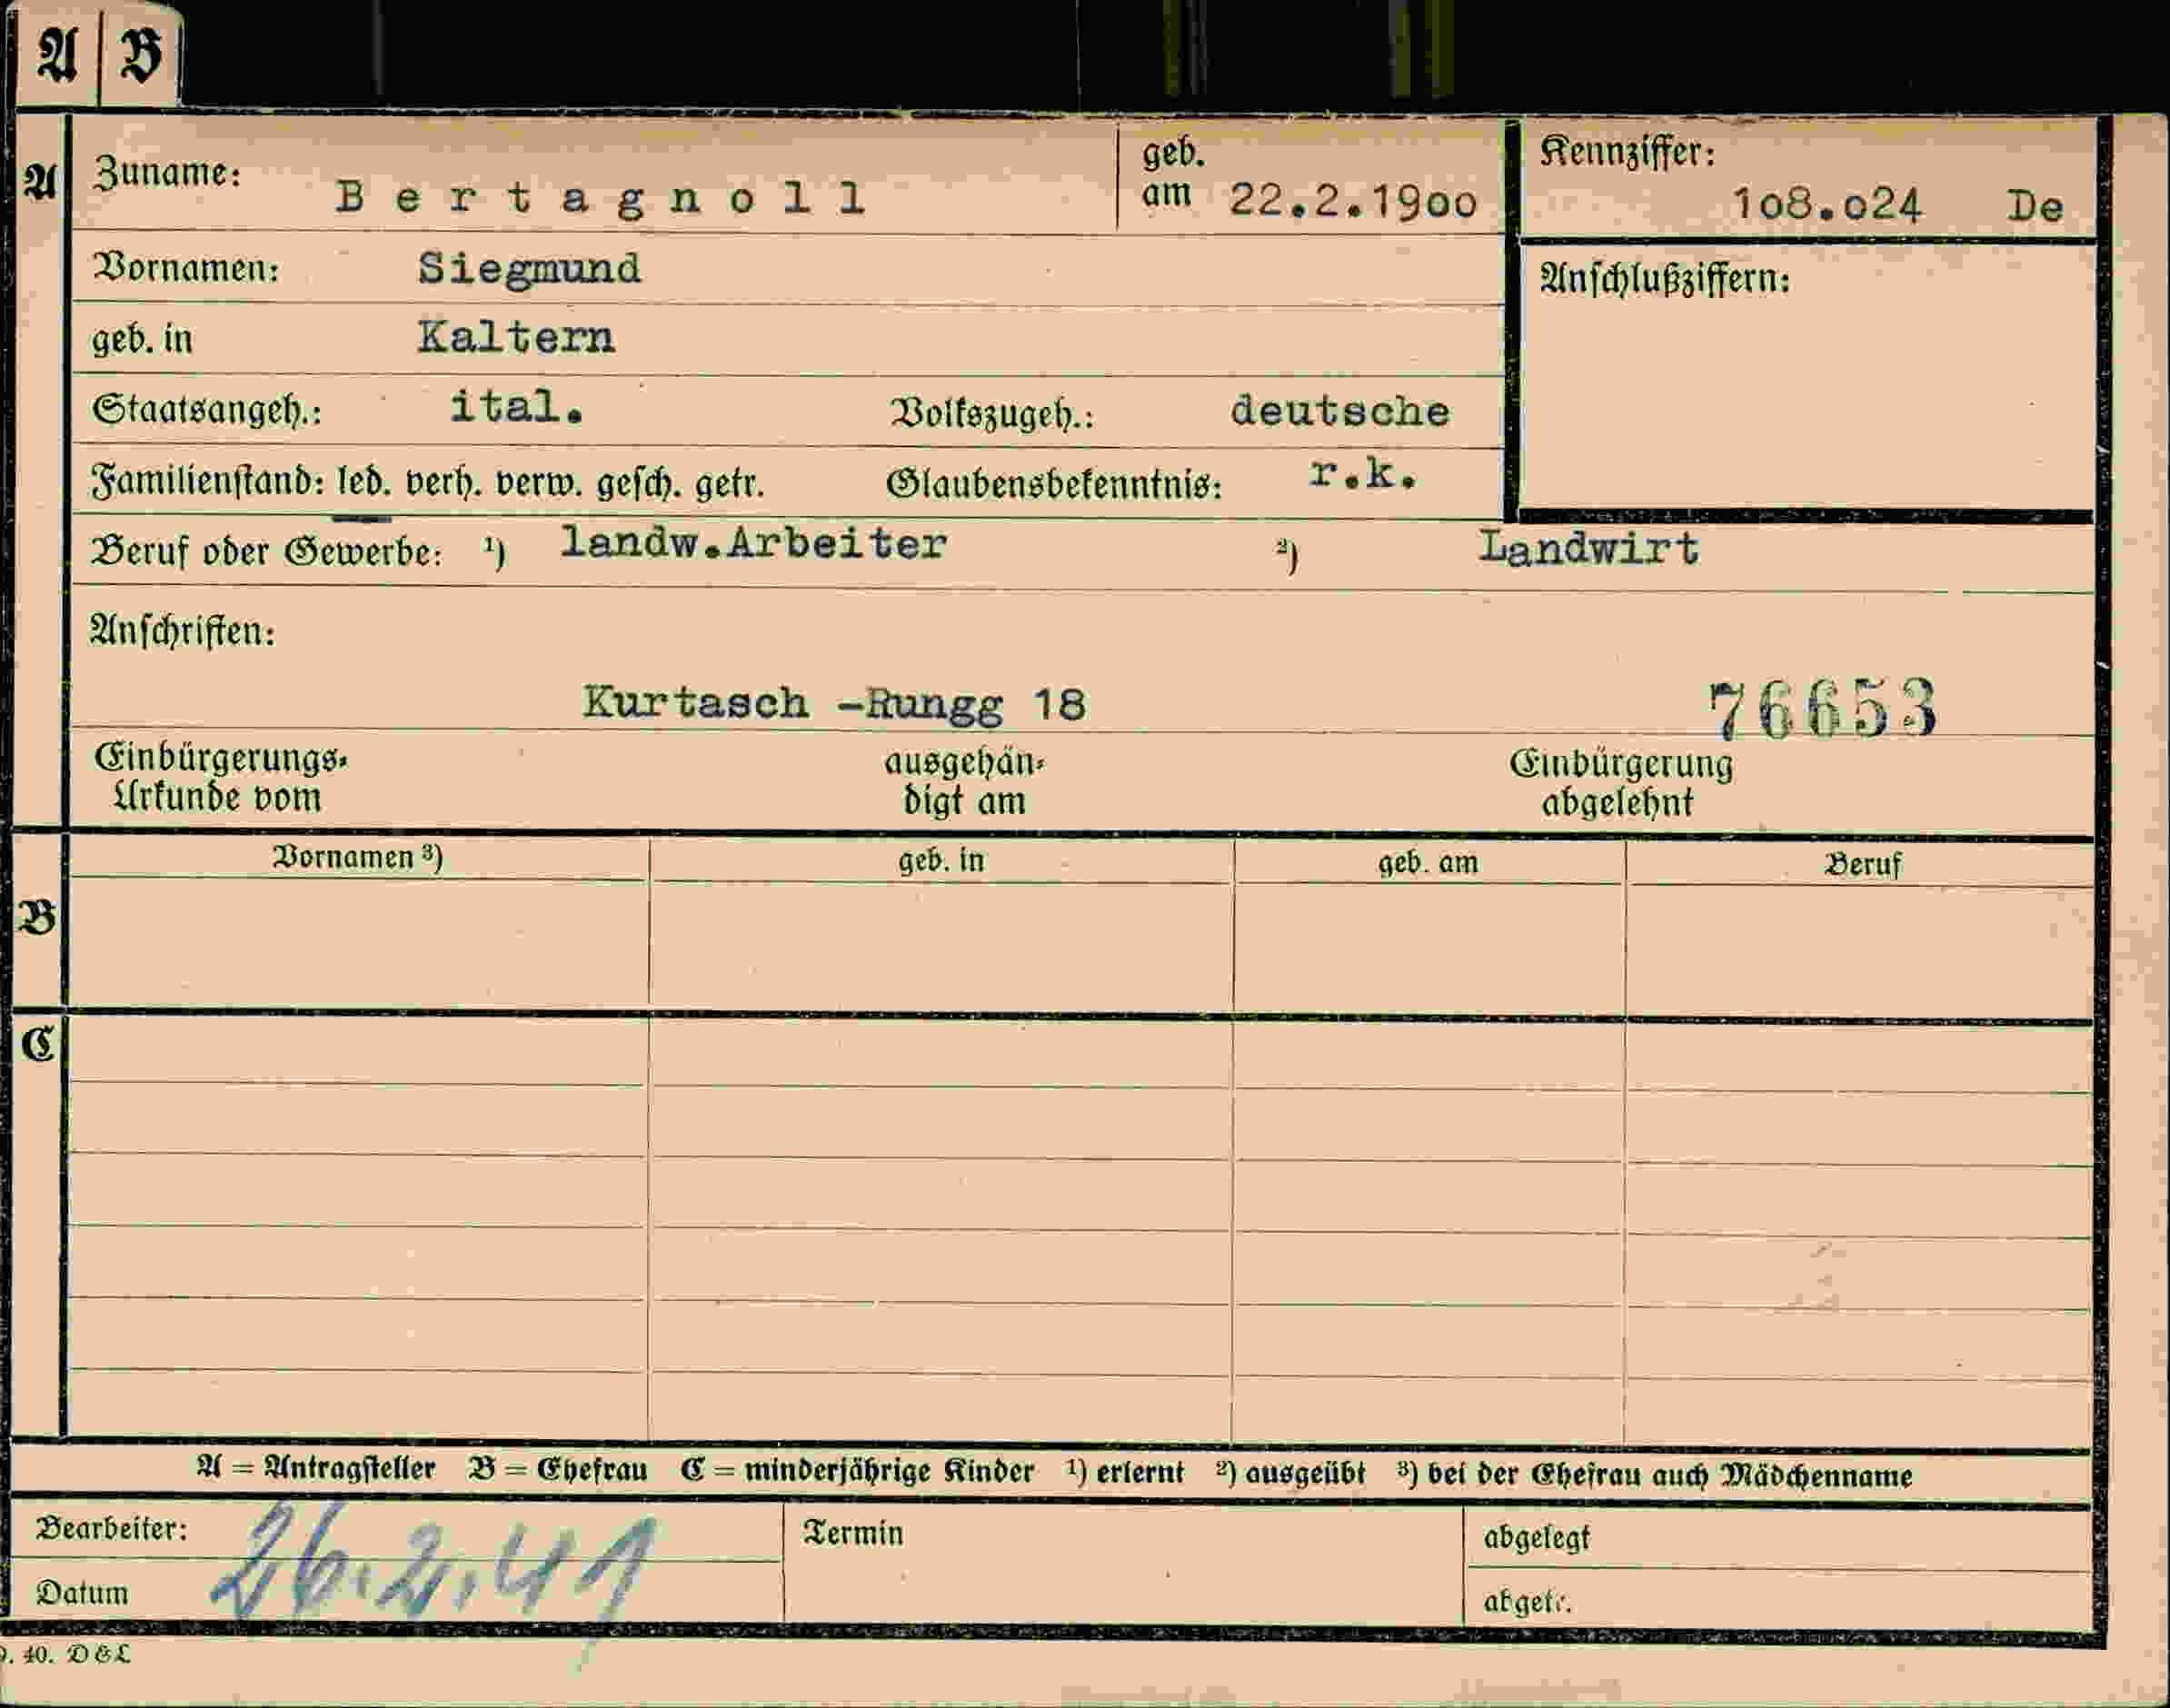 A B
A
Zuname: Bertagnoll geb. am 22.2.19oo Kennziffer: 1o8.o24 De
Vornamen: Siegmund Anschlußziffern:
geb. in Kaltern
Staatsangeh.: ital. Volkszugeh.: deutsche
Familienstand: led. verh. verw. gesch. getr. Glaubensbekenntnis: r.k.
Beruf oder Gewerbe: ¹) landw.Arbeiter ²) Landwirt
Anschriften:
Kurtasch -Rungg 18 76653
Einbürgerungs- ausgehän- Einbürgerung
Urkunde vom digt am abgelehnt
Vornamen ³) geb. in geb. am Beruf
B
C
A = Antragsteller B = Ehefrau C = minderjährige Kinder ¹) erlernt ²) ausgeübt ³) bei der Ehefrau auch Mädchenname
Bearbeiter: Termin abgelegt
Datum 26.2.41 abgetr.
9. 40. D & L